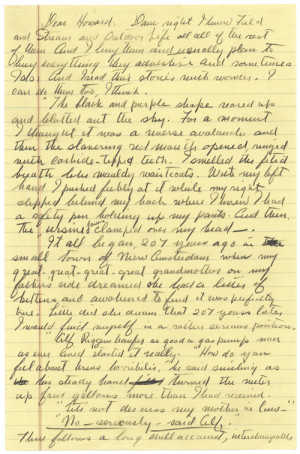 Dear Howard: Damn right I know Field
and Stream and Outdoor Life and all of the rest
of them. And I buy them and usually plan to
buy everything they advertise and sometimes
I do. And I read their stories with wonder. I
can do them too, I think.
The black and purple shape reared up
and blotted out the sky. For a moment
I thought it was a reverse avalanche and
then the slavering red mouth opened, ringed
with carbide-tipped teeth. I smelled the fetid
breath like mouldy waistcoats. With my left
hand I pushed feebly at it while my right
slipped behind my back where I knew I had
a safety pin holding up my pants. And then,
the clamped over my head —.
It all began, 207 years ago in
small town of New Amsterdam when my
great-great-great-great grandmother on my
fathers side dreamed she had a litter of
kittens and awakened to find it was perfectly
true. Little did she dream that 207 years later
I would find myself in a rather serious position.
Alf pumps gas as good a gas pumper now
as ever lived started it really. "How do you
feel about Ursus horribilis," he said smiling as
his steady hand turned the meter
up four gallons more than I had received.
"Lets not discuss my mother in law—"
"No—seriously—said Alf.
There follows a long dull account, interchangeable